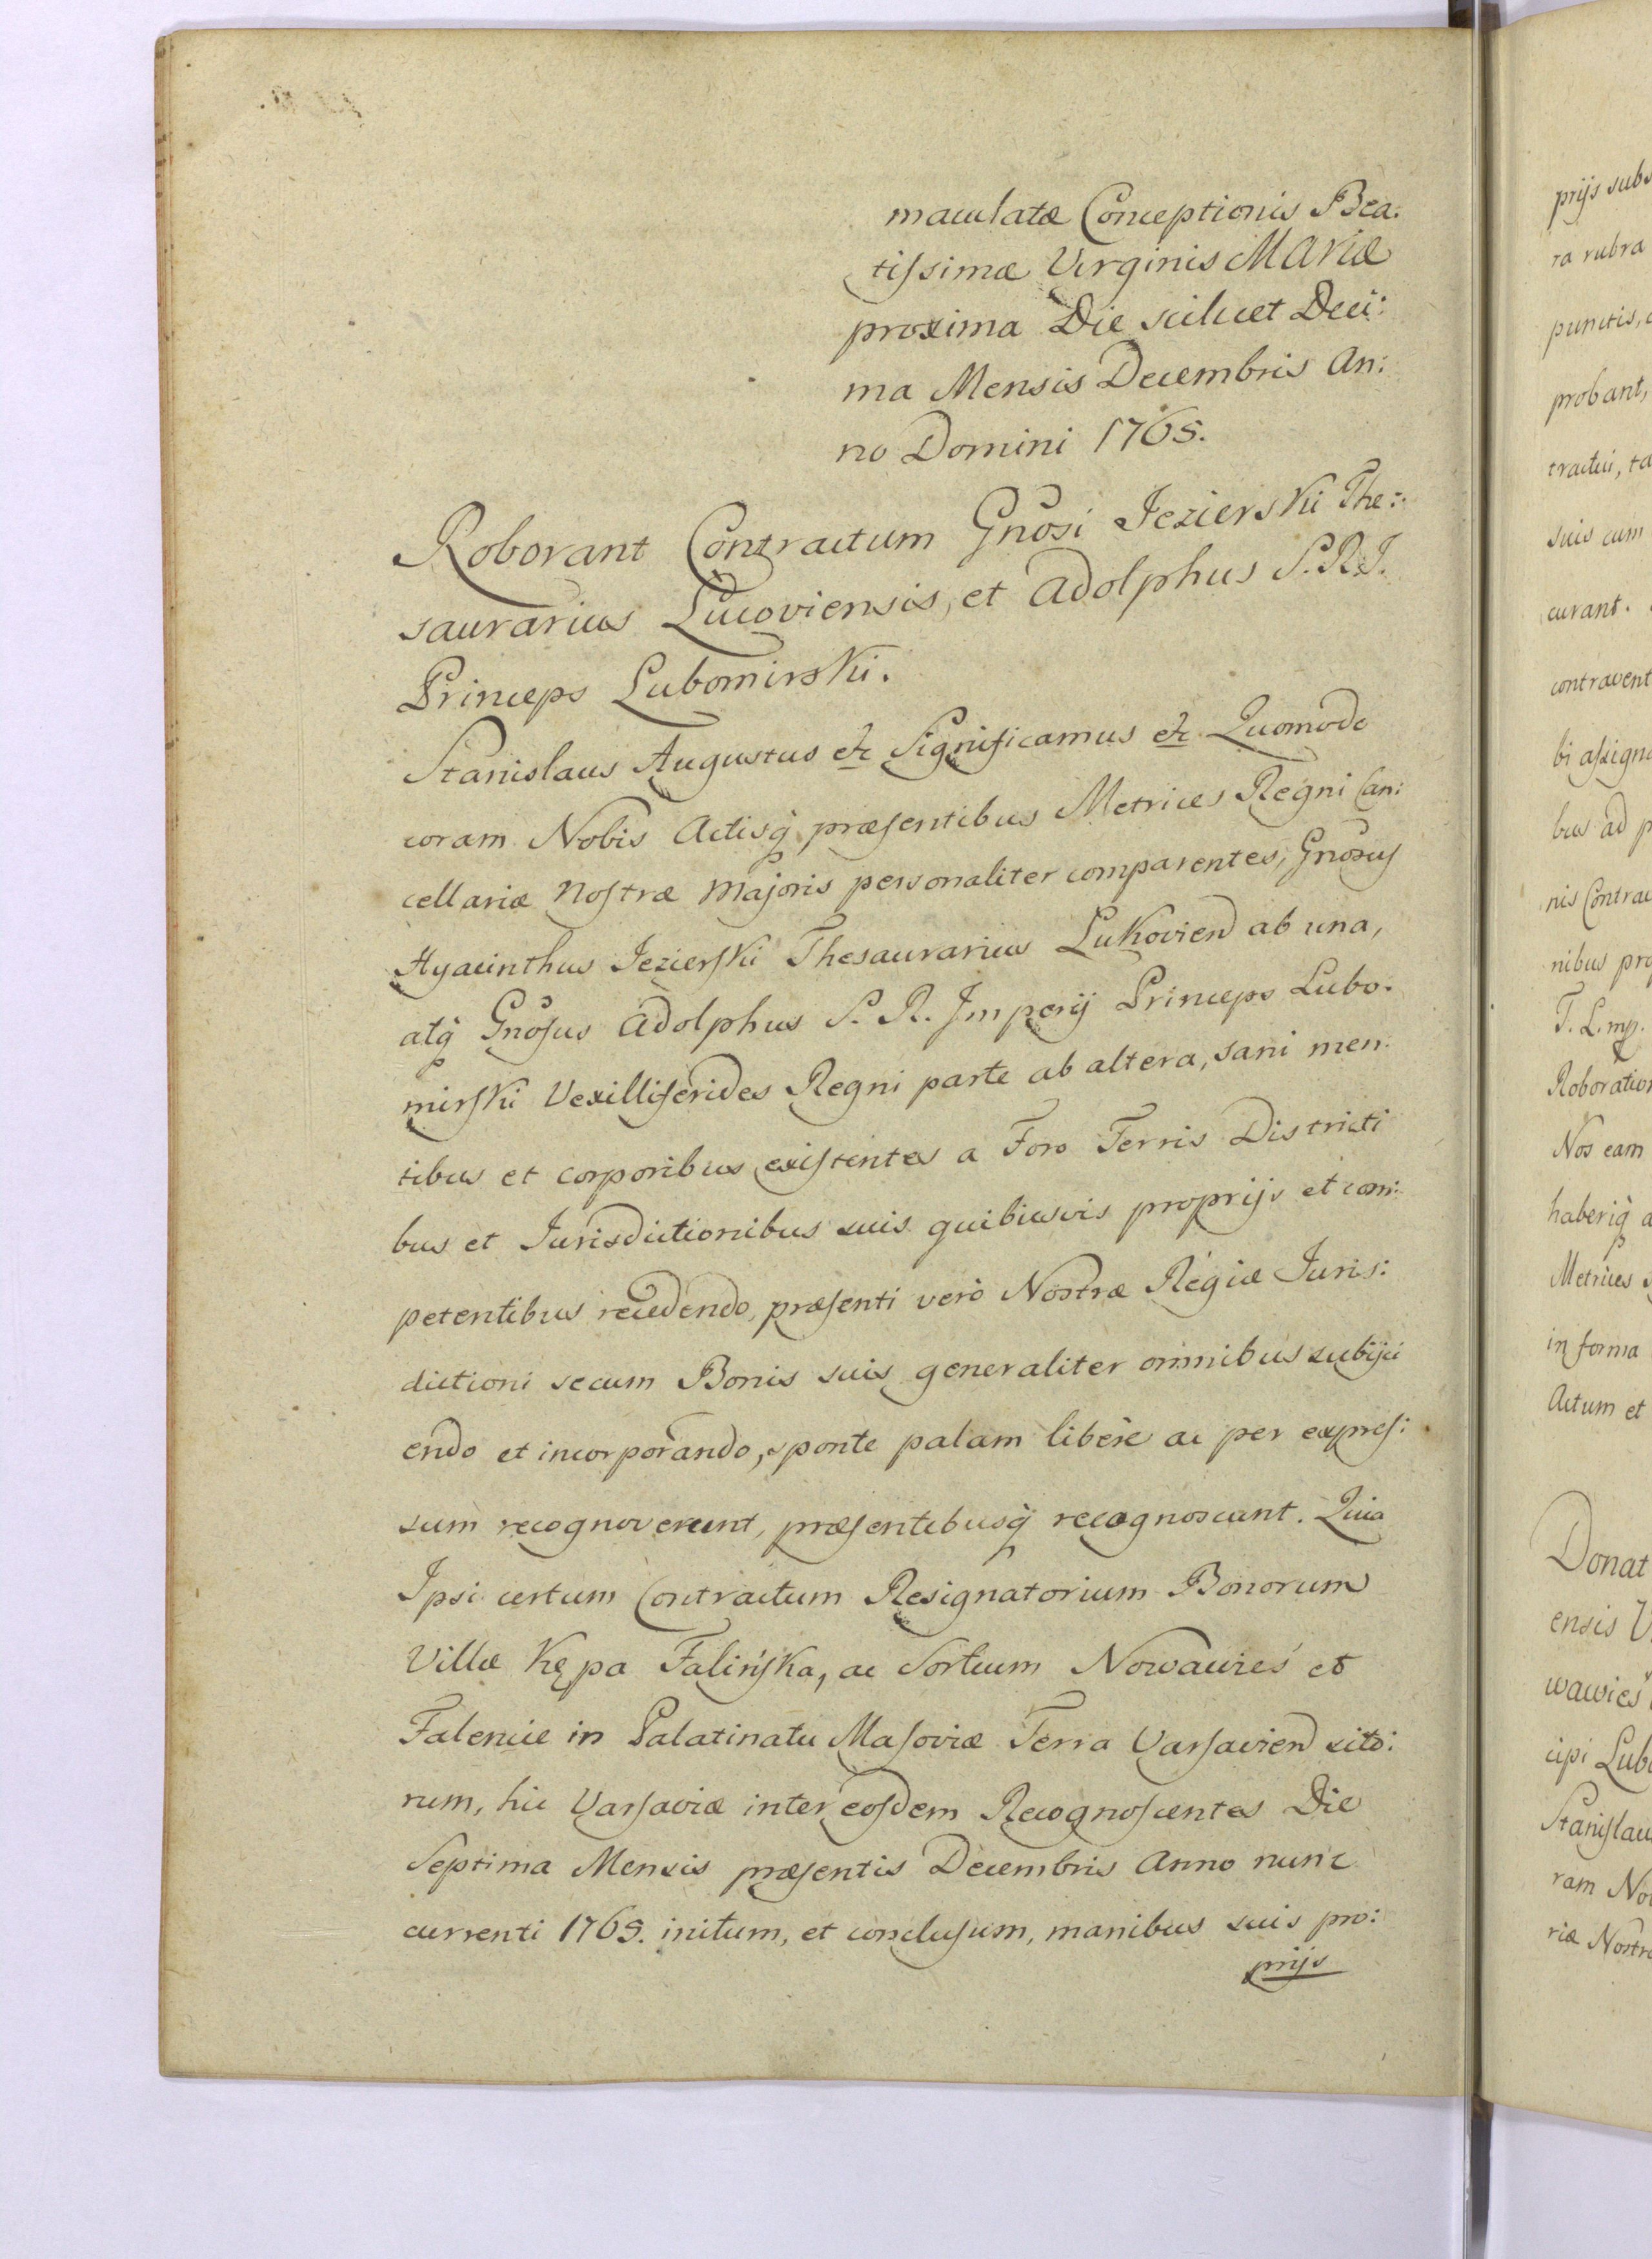 maculatæ Conceptionis Bea:
tissimæ Virginis MARIÆ
proxima Die scilicet Deci:
ma Mensis Decembris An:
no Domini 1765.
Roborant Contractum Gnosi Jezierski The:
saurarius Lucoviensis, et Adolphus S.R.J.
Princeps Lubomirski.
Stanislaus Augustus etc Significamus etc Quomodo
coram Nobis Actisq̃ præsentibus Metrices Regni Can:
cellariæ Nostræ Majoris personaliter comparentes, Gnosus
Hyacinthus Jezierski Thesaurarius Lukovien ab una,
atq̃ Gnosus Adolphus S. R. Imperij Princeps Lubo:
mirski Vexilliferides Regni parte ab altera, sani men:
tibus et corporibus existentes a Foro Terris Districti
bus et Jurisdictionibus suis quibusvis proprijs et com:
petentibus recedendo, præsenti verò Nostræ Regiæ Juris:
dictioni secum Bonis suis generaliter omnibus subijci
endo et incorporando, sponte palam liberè ac per expres:
sum recognoverunt, præsentibusq̃ recognoscunt. Quia
Ipsi certum Contractum Resignatorium Bonorum
Villæ Kępa Falińska, ac Sortium Nowawieś et
Falenice in Palatinatu Masoviæ Terra Varsavien sito:
rum, hic Varsaviæ inter eosdem Recognoscentes Die
Septima Mensis præsentis Decembris Anno nunc
currenti 1765. initum, et conclusum, manibus suis pro:
prijs
prijs subs
ra rubra
punctis,
probant,
tractui, ta
suis cum
curant.
contravent
bi assigna
bus ad p
nis Contrac
nibus pro
T. L. mp.
Roboration
Nos eam
haberiq̃ a
Metrices
in forma
Actum et
Donat
ensis V
wawieś
cipi Lub
Stanislau
ram No
riæ Nostr